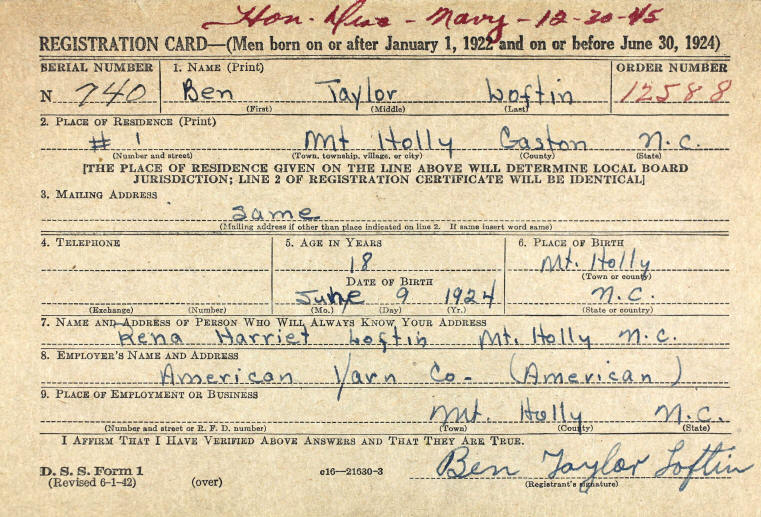 Hon. Disc - Navy - 12-20-45
REGISTRATION CARD—(Men born on or after January 1, 1922 and on or before June 30, 1924)
SERIAL NUMBER 1. NAME (Print) ORDER NUMBER
N 740 Ben Taylor Loftin 12588
(First) (Middle) (Last)
2. PLACE OF RESIDENCE (Print)
# 1 Mt Holly Gaston N.C.
(Number and street) (Town, township, village, or city) (County) (State)
[THE PLACE OF RESIDENCE GIVEN ON THE LINE ABOVE WILL DETERMINE LOCAL BOARD
JURISDICTION; LINE 2 OF REGISTRATION CERTIFICATE WILL BE IDENTICAL]
3. MAILING ADDRESS
same
(Mailing address if other than place indicated on line 2. If same insert word same)
4. TELEPHONE 5. AGE IN YEARS 6. PLACE OF BIRTH
18 Mt. Holly
DATE OF BIRTH (Town or county)
June 9 1924 N.C.
(Exchange) (Number) (Mo.) (Day) (Yr.) (State or country)
7. NAME AND ADDRESS OF PERSON WHO WILL ALWAYS KNOW YOUR ADDRESS
Rena Harriet Loftin Mt. Holly N.C.
8. EMPLOYER'S NAME AND ADDRESS
American Yarn Co- (American)
9. PLACE OF EMPLOYMENT OR BUSINESS
Mt. Holly N.C.
(Number and street or R. F. D. number) (Town) (County) (State)
I AFFIRM THAT I HAVE VERIFIED ABOVE ANSWERS AND THAT THEY ARE TRUE.
Ben Taylor Loftin
D. S. S. Form 1 e16—21630-3
(Revised 6-1-42) (over) (Registrant's signature)